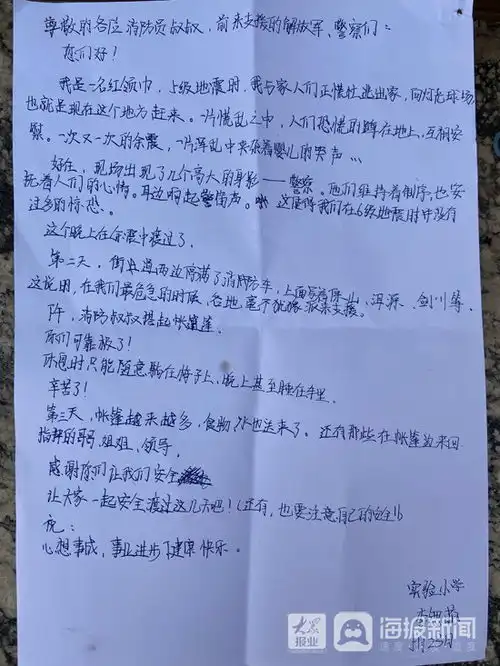 尊敬的各位消防员叔叔，前来支援的解放军、警察们：
您们好！
我是一名红领巾，5级地震时，我与家人们正慌忙逃出家，向灯光球场
也就是现在这个地方赶来。一片慌乱之中，人们恐慌的蹲在地上，互相安
察。一次又一次的余震，一片浑乱中夹杂着婴儿的哭声…
好在，现场出现了几个高大的身影——警察。他们维持着制序，也安
抚着人们的心情。耳边响起警笛声。这使得我们在6级地震时中没有
过多的惊恐。
这个晚上在余震中渡过了。
第二天，街道两边停满了消防车，上面写着保山、洱源、剑川等，
这说明，在我们最危急的时候，各地毫不犹豫派来支援。
下午，消防叔叔搭起帐篷
你们可靠极了！
休息时只能随意躺在椅子上，晚上甚至睡在车里。
辛苦了！
第三天，帐篷越来越多，食物、水也送来了。还有那些在帐篷边来回
指挥的哥哥、姐姐、领导，
感谢你们让我们安全
让大家一起安全渡过这几天吧！（还有，也要注意自己的安全！）
祝：
心想事成，事业进步，健康快乐。
实验小学
5月23日
大众报业
海报新闻